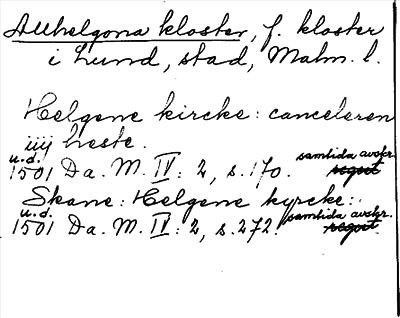 Allhelgona kloster, f. kloster
i Lund, stad, Malm. l.
Helgene kircke: canceleren
iiij heste.
u.d. samtida avskr.
1501 Da. M. IV: 2, s. 170. regest
Skane: Helgene kyrcke:
u.d. samtida avskr.
1501 Da. M. IV: 2, s. 272. regest